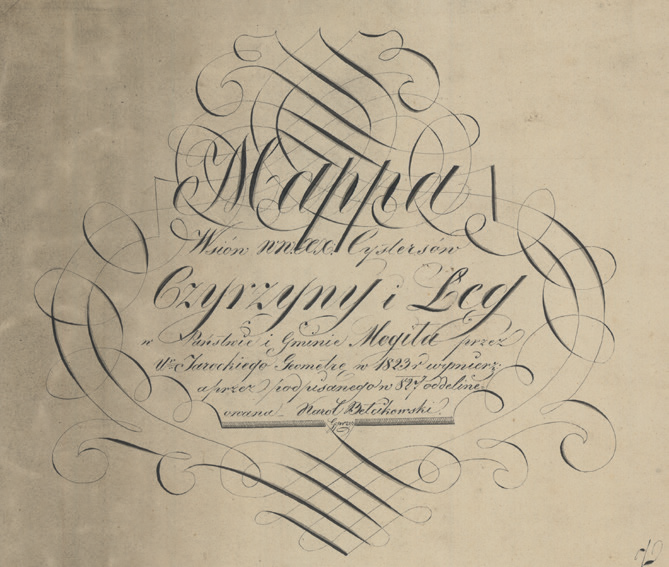 Mappa
Wsiów WW.XX. Cystersów
Czyrzyny i Łęg
w Państwie i Gminie Mogiła przez
Jarockiego Geometrę w 1823 r wymierz:
a przez podpisanego w oddeline-
owana Karol